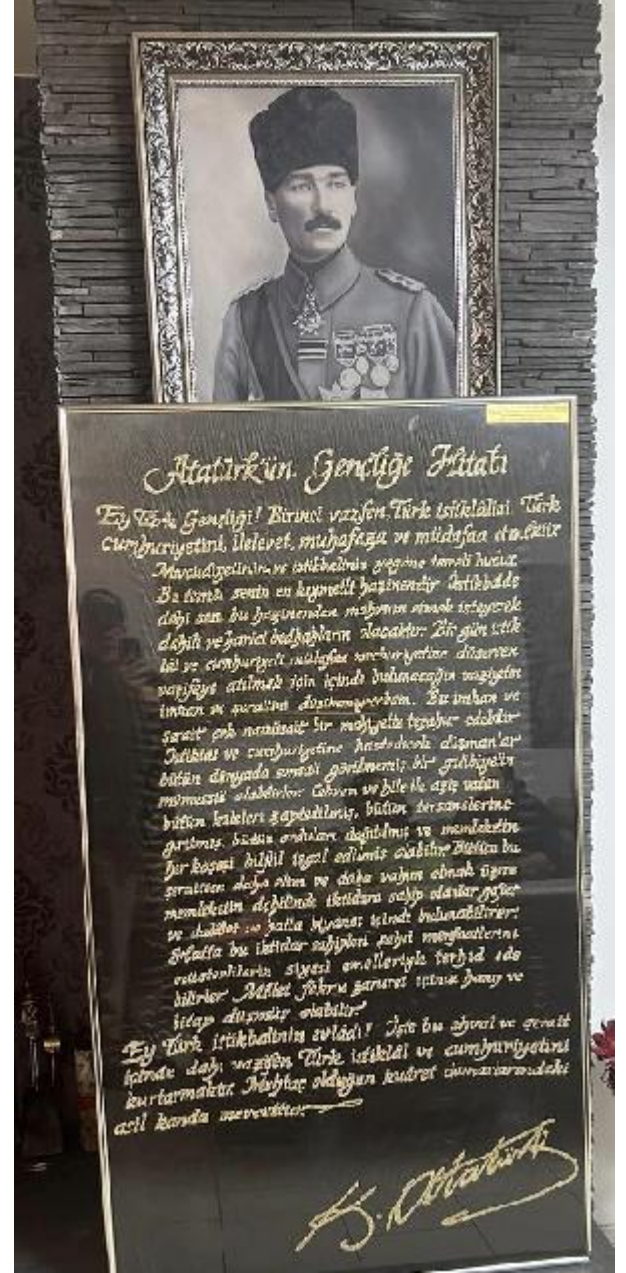 Atatürkün Gençliğe Hitabı
Ey Türk Gençliği! Birinci vazfen, Türk istiklâlini Türk
cumhuriyetini, ilelevet, muhafaza ve müdafaa etmektir
Mevcudiyetinin ve istikbalinin yegâne temeli budur
Bu temel senin en kıymetli hazinendir İstikbalde
dahi seni bu hazinenden mahrum etmek isteyecek
dahili ve harici bedhahların olacaktır Bir gün istik
lâl ve cumhuriyeti müdafaa mecburiyetine düşersen
vazifeye atılmak için içinde bulunacağın vaziyetin
imkan ve şeraitini düşünmeyeceksin. Bu imkan ve
şerait çok namüsait bir mahiyette tezahür edebilir
İstiklal ve cumhuriyetine kastedecek düşmanlar
bütün dünyada emsali görülmemiş bir galibiyetin
mümessili olabilirler Cebren ve hile ile aziz vatanın
bütün kaleleri zaptedilmiş, bütün tersanelerine
girilmiş, bütün orduları dağıtılmış ve memleketin
her köşesi bilfiil işgal edilmiş olabilir Bütün bu
şeraitten daha elim ve daha vahim olmak üzere
memleketin dahilinde iktidara sahip olanlar gaflet
ve dalâlet ve hatta hiyanet içinde bulunabilirler
Hatta bu iktidar sahipleri şahsi menfaatlerini
siyasi emelleriyle tevhid ede
bilirler Millet fakru zaruret içinde harap ve
bitap düşmüş olabilir
Ey Türk istikbalinin evlâdı! İşte bu ahval ve şerait
içinde dahi vazifen Türk istiklâl ve cumhuriyetini
kurtarmaktır Muhtaç olduğun kudret damarlarındaki
asil kanda mevcuttur
K. Atatürk